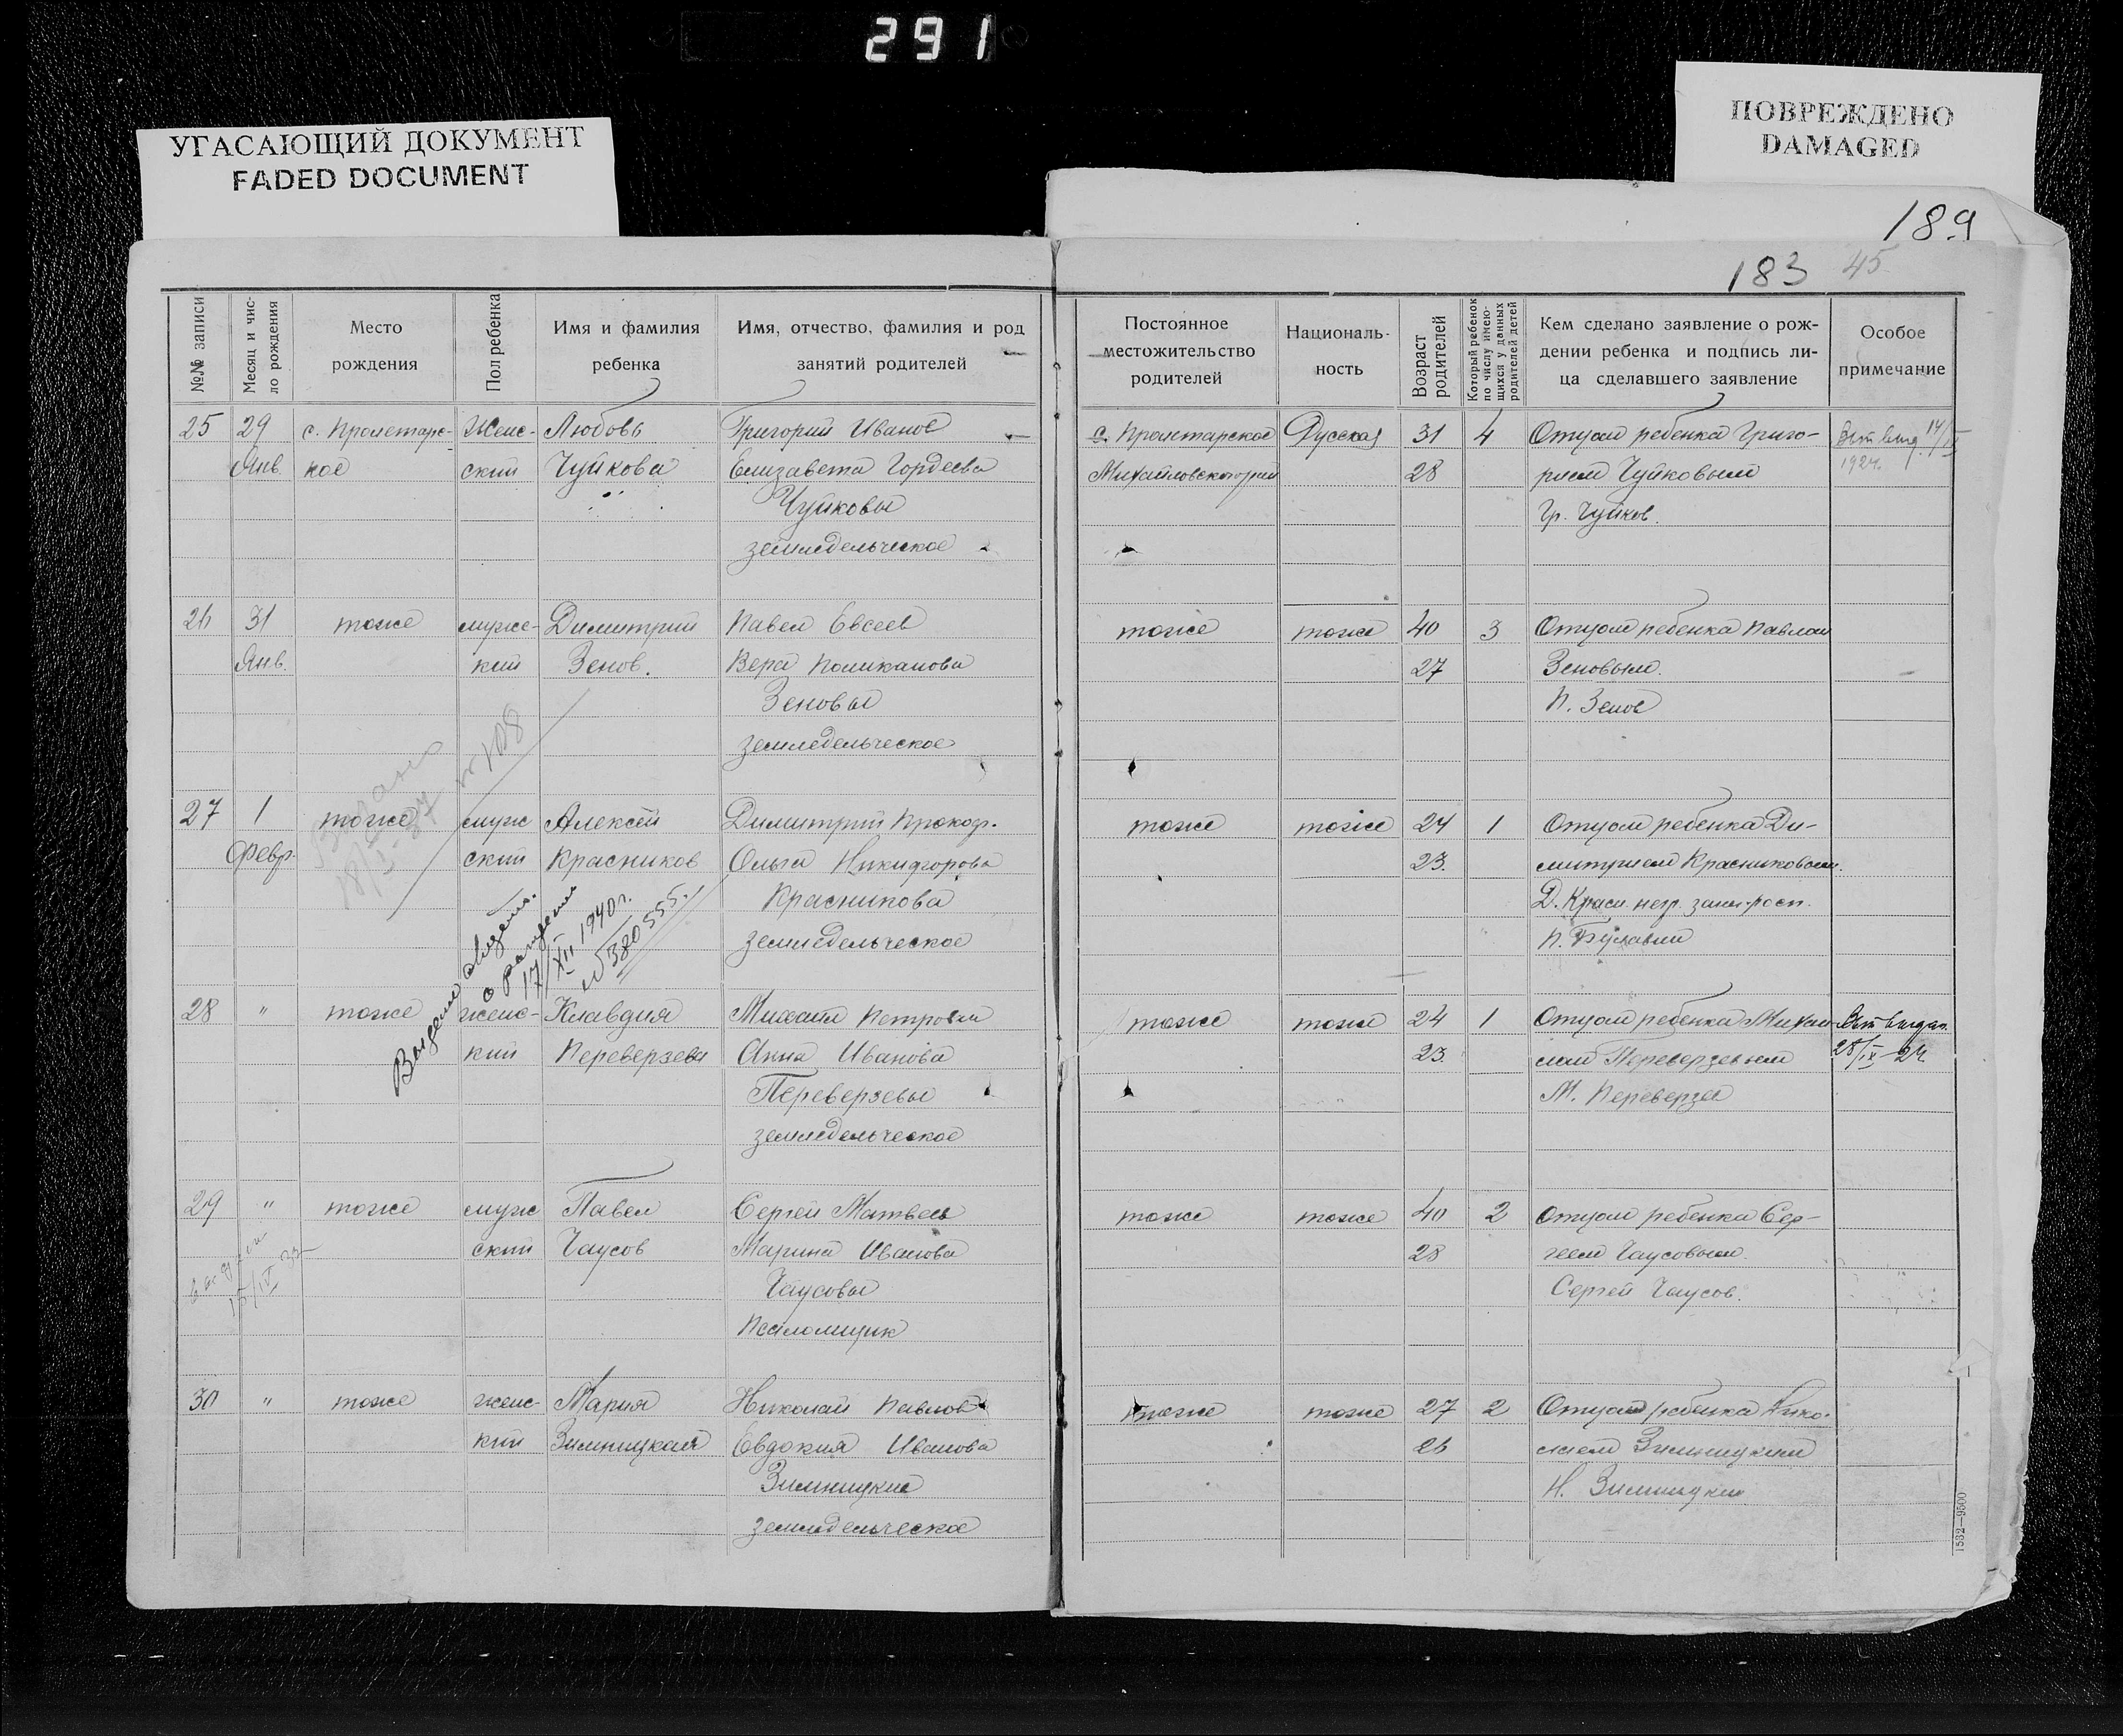 291
УГАСАЮЩИЙ ДОКУМЕНТ
FADED DOCUMENT
ПОВРЕЖДЕНО
DAMAGED
189
183 45
№№ записи
Месяц и чис-
ло рождения
Место
рождения
Пол ребенка
Имя и фамилия
ребенка
Имя, отчество, фамилия и род
занятий родителей
Постоянное
местожительство
родителей
Националь-
ность
Возраст
родителей
Который ребенок
по числу имею-
щихся у данных
родителей детей
Кем сделано заявление о рож-
дении ребенка и подпись ли-
ца сделавшего заявление
Особое
примечание
25 29 с. Пролетарс- Женс- Любовь Григорий Иванов с. Пролетарское Русская 31 4 Отцом ребенка Григо- 14/
Янв. кое ский Чуйкова Елизавета Гордеева Михайловской 28 рием Чуйковым 1924.
Чуйковы Гр. Чуйков.
земледельческое
26 31 тоже мужс- Димитрий Павел Евсеев тоже тоже 40 3 Отцом ребенка Павлом
Янв. кий Зенов. Вера Поликанова 27 Зеновым.
Зеновы П. Зенов
земледельческое
№ 108
27 1 тоже муж Алексей Димитрий Прокоф. тоже тоже 24 1 Отцом ребенка Ди-
Февр. ский Красников Ольга Никифорова 23. митрием Красниковым.
Красникова Д. Красн. негр. расп.
земледельческое
Выдано свидет.
о рождении
17/XII 1940 г.
№ 380555.
28 " тоже женс- Клавдия Михаил Петров тоже тоже 24 1 Отцом ребенка Михаи-
кий Переверзева Анна Иванова 23 лом Переверзевым 28/IX-24
Переверзевы М. Переверзев
земледельческое
29 " тоже муж Павел Сергей Матвеев тоже тоже 40 2 Отцом ребенка Сер-
ский Чаусов Марина Иванова 28 геем Чаусовым.
15/IV 33
Чаусовы Сергей Чаусов.
Псаломщик
30 " тоже женс- Мария Николай Павлов тоже тоже 27 2 Отцом ребенка Нико-
кий Зимницкая Евдокия Иванова 26 лаем Зимницким
Зимницкие Н. Зимницкий
земледельческое
1532—9500